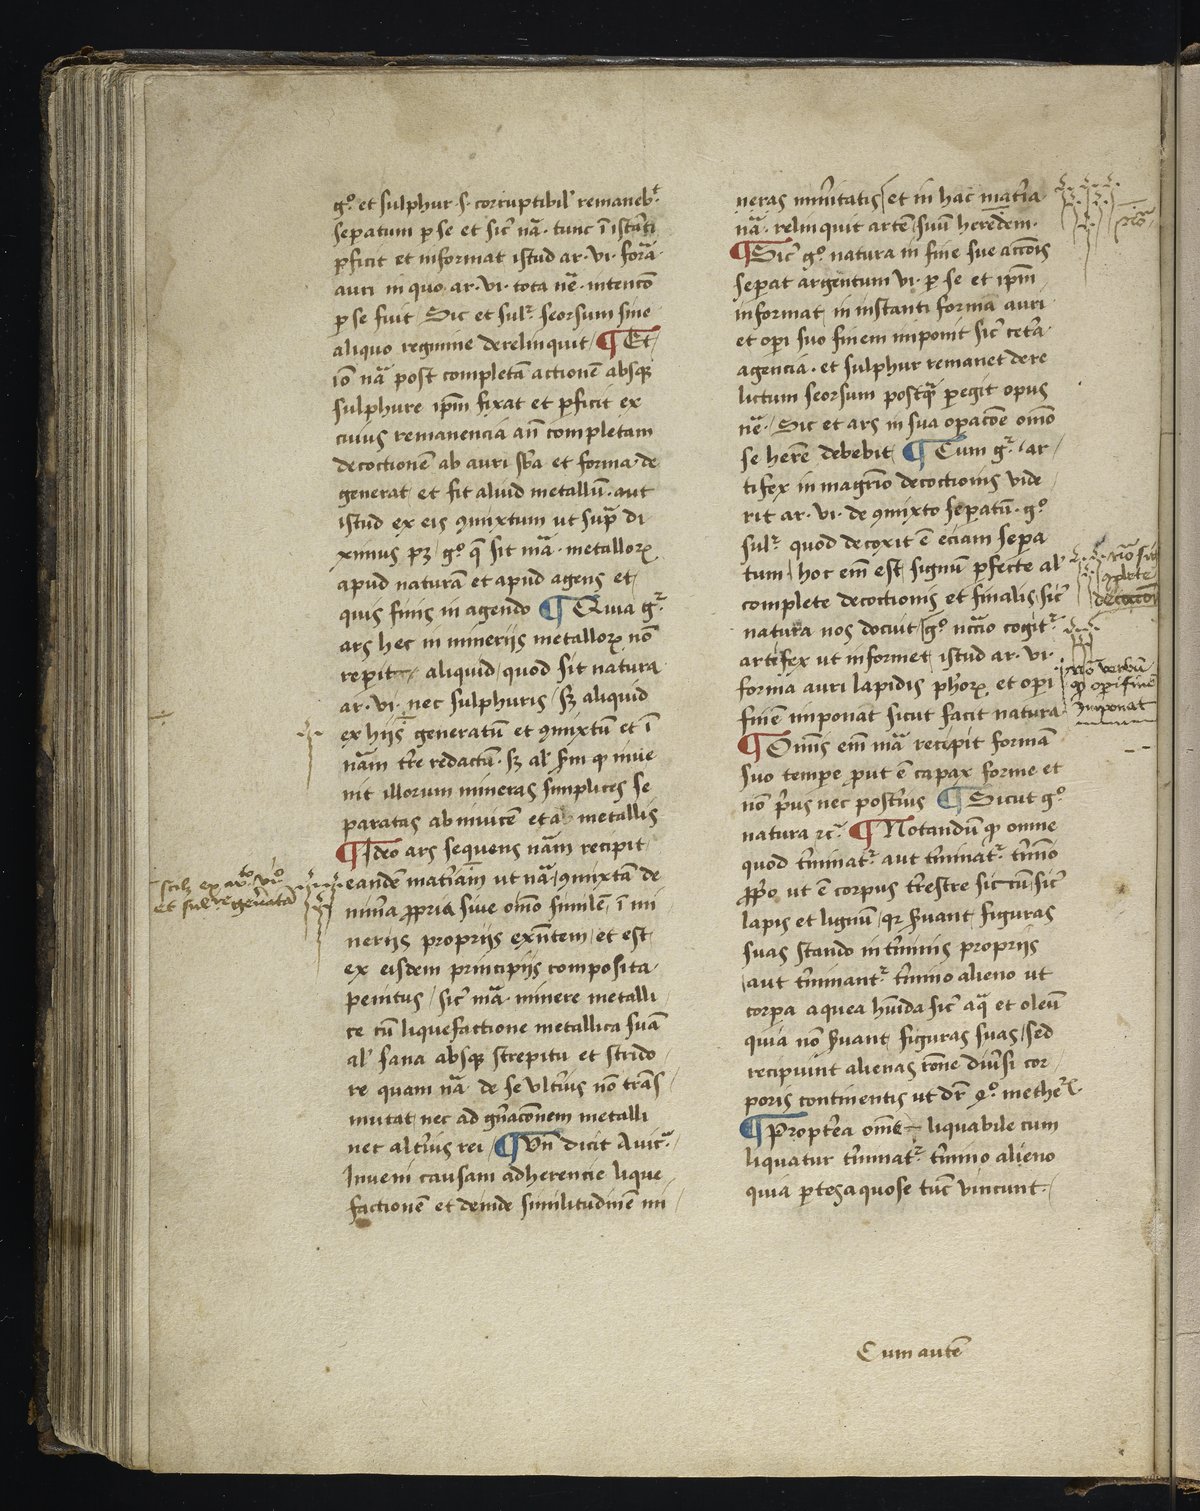 g͛o et sulphur .s. corruptibil' remanebt.
sepatum p se et sic nã. tunc ĩ istãti
pficit et informat istud ar. vi. formã
auri in quo ar. vi. tota nẽ. intencõ
p se fuit / Sic et sulr. seorsum sine
aliquo regimine derelinquit / ¶ Et
iõ nã post completã actionẽ absq;
sulphure ipm fixat et pficit ex
cuius remanencia añ completam
decoctionẽ ab auri sba et forma. de
generat et fit aliud metallũ. aut
istud ex eis ꝯmixtum ut supra di
ximus pꝫ / go. q̃ sit mã. metalloꝝ
apud naturã et apud agens et
quis finis in agendo ¶ Quia gr.
ars hec in minerijs metalloꝝ nõ
reperit aliquid / quod sit natura
ar. vi. nec sulphuris / sꝫ aliquid
ex hijs generatũ et ꝯmixtũ et ĩ
nãm tre redactũ. sꝫ al' sm qꝫ inue
nit illorum mineras simplices se
paratas ab inuicẽ et ab metallis
¶ Ideo ars sequens nãm recipit
eandẽ materiam ut nã / ꝯmixtã de
minera ppria siue omo similẽ / ĩ mi
nerijs proprijs exñtem / et est
ex eisdem principijs composita
penitus / sic mã. minere metalli
ce cũ liquefactione metallica suã
al' sana absq; strepitu et strido
re quam nã. de se ulterius nõ trãs
mutat nec ad gñacõnem metalli
nec alterius rei / ¶ Vñ dicit Auicᵃ.
Inueni causam adherencie lique
factionẽ et deinde similitudinẽ mi
neras vnitatis / et in hac materia
nã. relinquit artẽ suũ heredem.
¶ Sic go. natura in fine sue accõis
separat argentum vi. p se et ipm
informat in instanti forma auri
et opi suo finem imponit sic cetera
agencia. et sulphur remanet dere
lictum seorsum postq̃ peegit opus
nẽ. / Sic et ars in sua opacõe omo
se here debebit / ¶ Cum gr. ar
tifex in magrio decoctionis vide
rit ar. vi. de ꝯmixto separatũ. go
sulr. quod decoxit e eciam sepa
tum / hoc em est / signũ pfecte al'
complete decoctionis et finalis / sic
natura nos docuit / go. nccio cogitr
artifex ut informet istud ar. vi.
forma auri lapidis phoꝝ et opi
finẽ imponat sicut facit natura
¶ Omis em mã recipit formã
suo tempe put e capax forme et
nõ prius nec posterius ¶ Sicut go.
natura ꝛc. ¶ Notandũ qꝫ omne
quod terminatr. aut terminatr. termio
pprio ut e corpus terrestre siccũ / sic
lapis et lignũ / qr seruant figuras
suas stando in terminis proprijs
/ aut terminantr. termino alieno ut
corpora aquea humida sic aq̃ et oleũ
quia nõ seruant figuras suas / sed
recipiunt alienas rõne diuersi cor
poris continentis ut dr 4o. metheꝝ.
¶ Propterea omne liquabile cum
liquatur terminatr. termino alieno
quia ptes aquose tũc vincunt.
scilꝫ ex arto. viuo.
et sulre generata
nõ sig
ꝯplete
decoction
nõ verbũ
qꝫ opi finẽ
Imponat
Cum autẽ